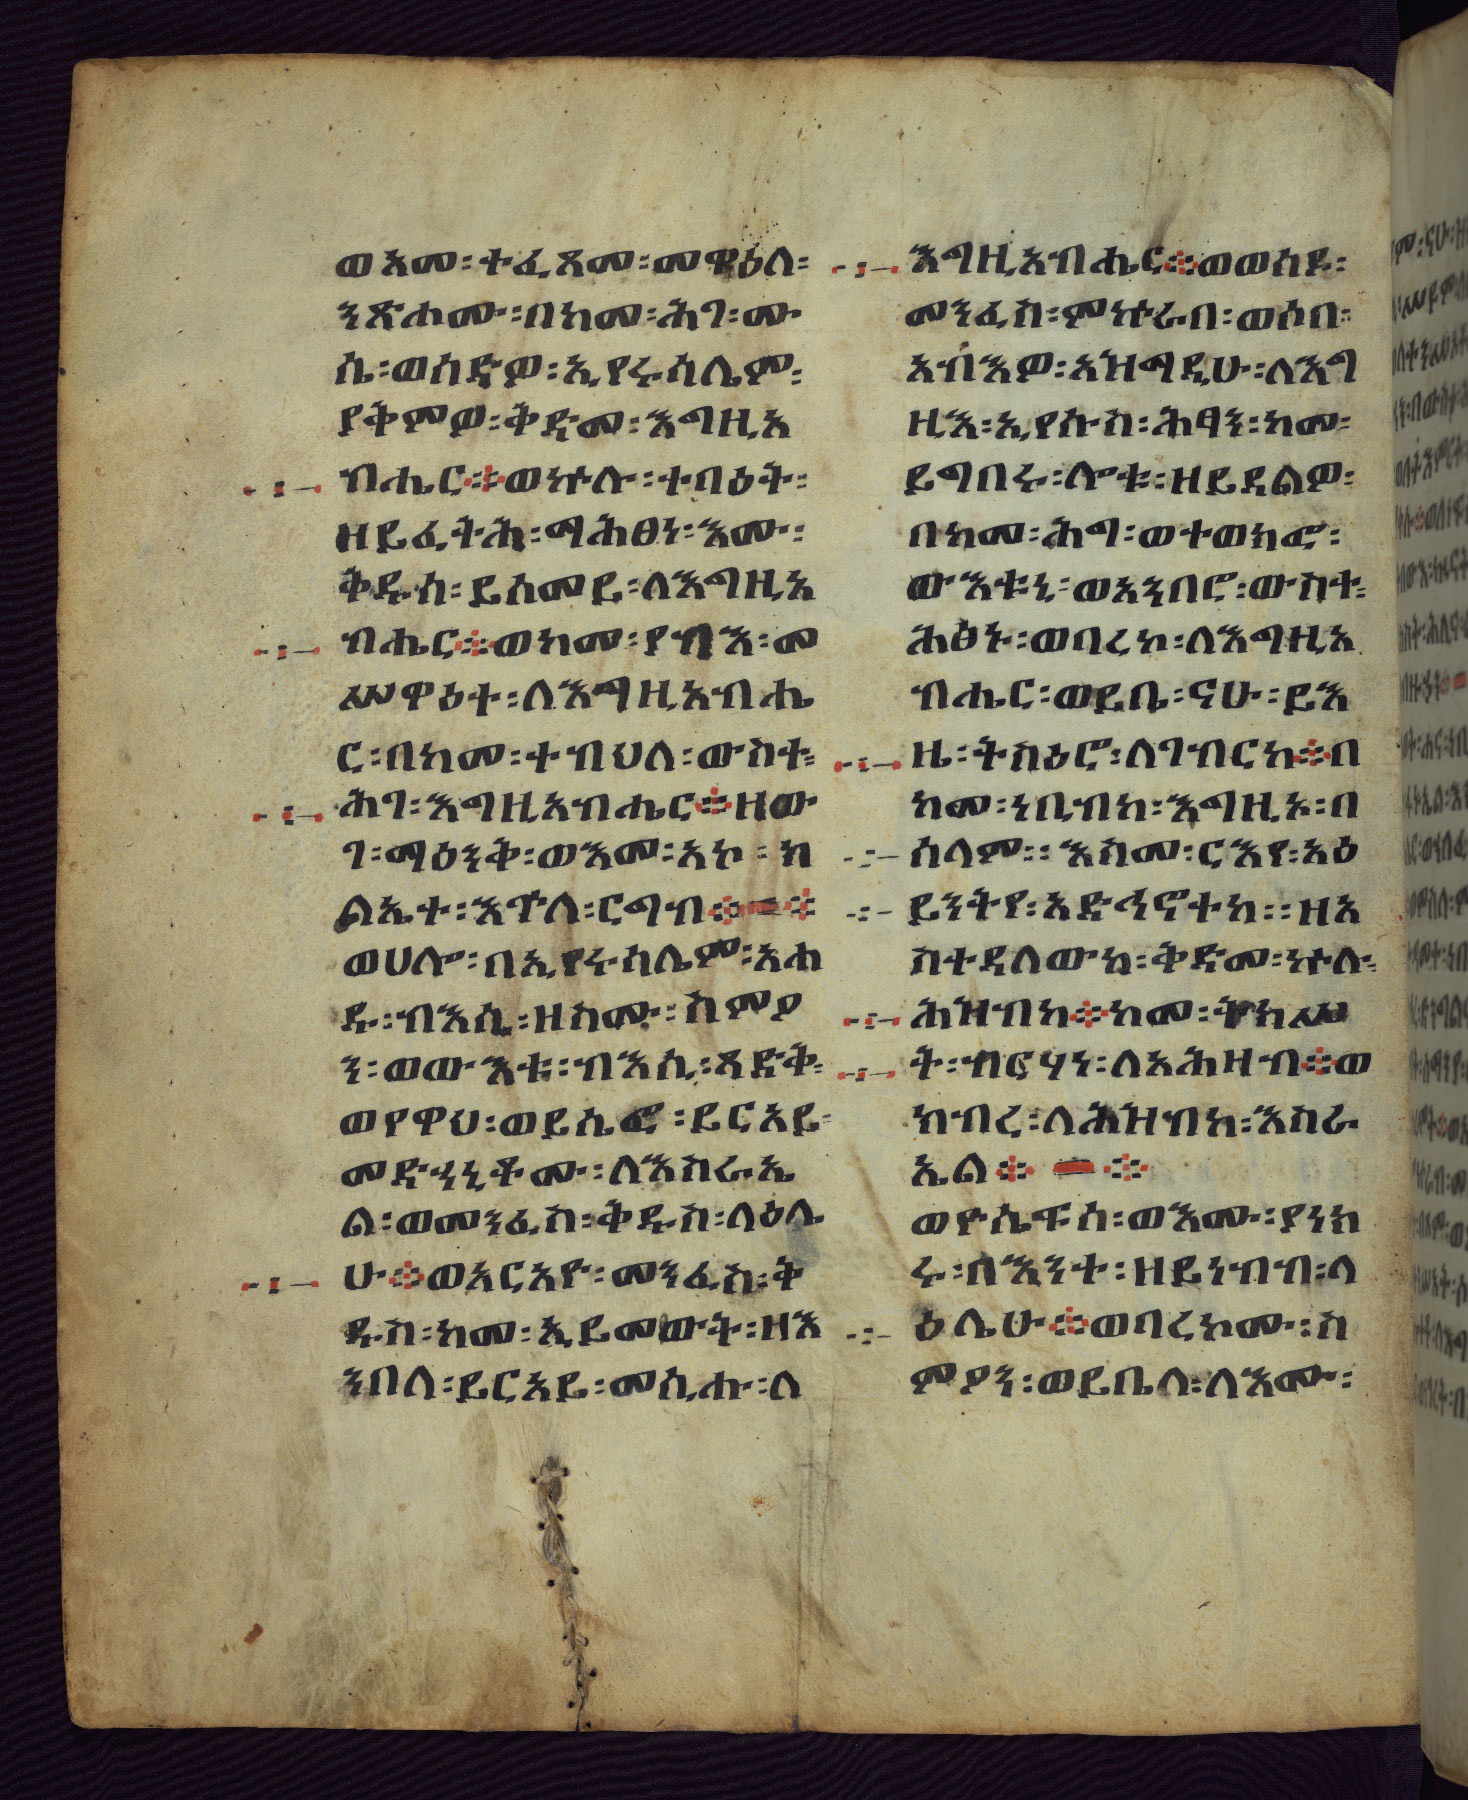 ወአመ፡ተፈጸመ፡መዋዕለ፡
ንጽሐሙ፡በከመ፡ሕገ፡ሙ
ሴ፡ወሰድዎ፡ኢየሩሳሌም፡
ያቅምዎ፡ቅድመ፡እግዚአ
ብሔር፨ወኵሉ፡ተባዕት፡
ዘይፈትሕ፡ማሕፀነ፡እሙ፡
ቅዱስ፡ይሰመይ፡ለእግዚአ
ብሔር፨ወከመ፡ያብእ፡መ
ሥዋዕተ፡ለእግዚአብሔ
ር፡በከመ፡ተብህለ፡ውስተ፡
ሕገ፡እግዚአብሔር፨ዘው
ገ፡ማዕንቅ፡ወእመ፡አኮ፡ክ
ልኤተ፡እጕለ፡ርግብ፨፨
ወሀሎ፡በኢየሩሳሌም፡አሐ
ዱ፡ብእሲ፡ዘስሙ፡ስምዖ
ን፡ወውእቱ፡ብእሲ፡ጻድቅ፡
ወየዋህ፡ወይሴፎ፡ይርአይ፡
መድኀኒቶሙ፡ለእስራኤ
ል፡ወመንፈስ፡ቅዱስ፡ላዕሌ
ሁ፨ወአርአዮ፡መንፈስ፡ቅ
ዱስ፡ከመ፡ኢይመውት፡ዘእ
ንበለ፡ይርአይ፡መሲሑ፡ለ
እግዚአብሔር፨ወወሰዶ፡
መንፈስ፡ምኵራበ፡ወሶበ፡
አብእዎ፡አዝማዲሁ፡ለእግ
ዚእ፡ኢየሱስ፡ሕፃን፡ከመ፡
ይግበሩ፡ሎቱ፡ዘይደልዎ፡
በከመ፡ሕግ፡ወተወክፎ፡
ውእቱኒ፡ወአንበሮ፡ውስተ፡
ሕፅኑ፡ወባረኮ፡ለእግዚአ
ብሔር፡ወይቤ፡ናሁ፡ይእ
ዜ፡ትስዕሮ፡ለገብርከ፨በ
ከመ፡ነቢብከ፡እግዚኦ፡በ
ሰላም፡፡እስመ፡ርእያ፡አዕ
ይንትየ፡አድኅኖተከ፡፡ዘአ
ስተዳለውከ፡ቅድመ፡ኵሉ፡
ሕዝብከ፨ከመ፡ትክሥ
ት፡ብርሃነ፡ለአሕዛብ፨ወ
ክብረ፡ለሕዝብከ፡እስራ
ኤል፨፨
ወዮሴፍሰ፡ወእሙ፡ያነክ
ሩ፡በእንተ፡ዘይነብብ፡ላ
ዕሌሁ፨ወባረኮሙ፡ስ
ምዖን፡ወይቤላ፡ለእሙ፡